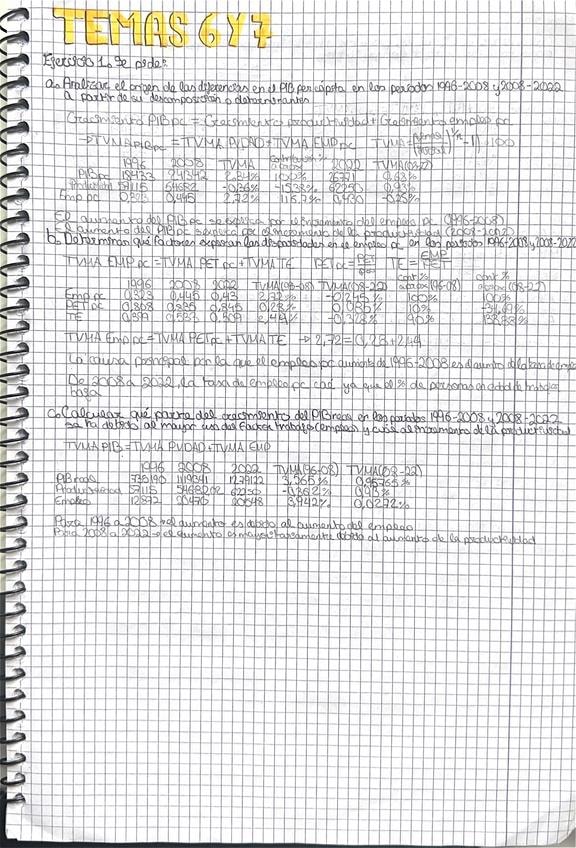 TEMAS 6 Y 7
Ejercicio 1. Se pide:
a. Analizar el origen de las diferencias en el PIB per cápita en los períodos 1996-2008 y 2008-2022
a partir de su descomposición o determinantes
Crecimiento PIBpc = Crecimiento productividad + Crecimiento empleo pc
→ TVMA PIBpc = TVMA PVDAD + TVMA EMPpc TVMA = -1) · 100
1996 2008 TVMA 2022 TVMA(08-22)
PIBpc 18433 24342 2,34% 100% 26771 0,63%
Productividad 57115 54682 -0,36% -15,38% 62250 0,93%
Emp pc 0,323 0,445 2,72% 116,7% 0,430 -0,25%
El aumento del PIB pc se explica por el incremento del empleo pc (1996-2008)
El aumento del PIB pc se explica por el incremento de la productividad
b. Determinar qué factores explican las disparidades en el empleo pc en los períodos 1996-2008 y 2008-2022
TVMA EMP pc = TVMA PET pc + TVMA TE PETpc = PET TE = EMP/PET
cont % cont %
1996 2008 2022 TVMA(96-08) TVMA(08-22) aprox (96-08) aprox (08-22)
Emp pc 0,323 0,445 0,43 2,72% -0,245% 100% 100%
PET pc 0,835 0,845 0,28% 0,085% 10% -34,69%
TE 0,533 0,509 2,44% 90%
TVMA Emp pc = TVMA PETpc + TVMA TE → 2,72 = 0,28 + 2,44
La causa principal por la que el empleo pc aumenta de 1996-2008 es el aumento de la tasa de empleo
De 2008 a 2022, la tasa de empleo pc cae ya que el % de personas en edad de trabajar
c. Calcular qué parte del crecimiento del PIB real en los períodos 1996-2008 y 2008-2022
se ha debido al mayor uso del factor trabajo (empleo) y cuál al incremento de la productividad
TVMA PIB = TVMA PVDAD + TVMA EMP
1996 2008 2022 TVMA(96-08) TVMA(08-22)
PIB real 735190 1119341 1279122 3,565% 0,95765%
Productividad 57115 54682,02 62250 -0,362% 0,93%
Empleo 12872 20470 20548 3,942% 0,0272%
Para 1996 a 2008 → el aumento es debido al aumento del empleo
Para 2008 a 2022 → el aumento es mayoritariamente debido al aumento de la productividad